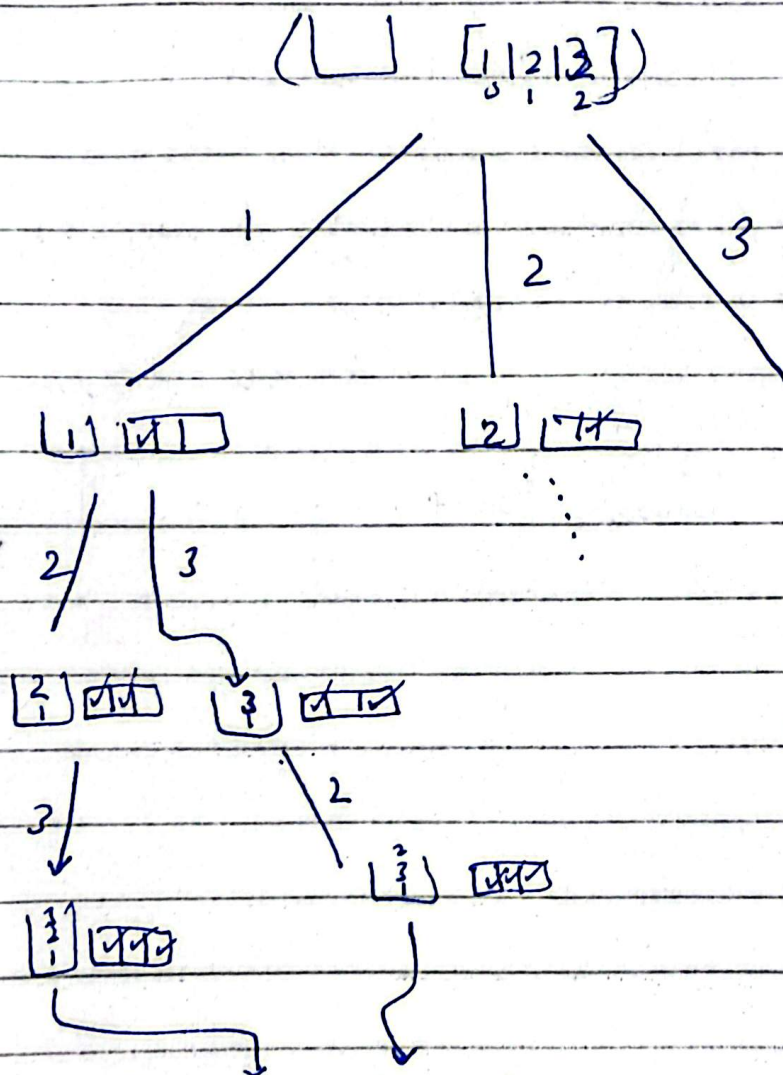 ( [1|2|3] )
0 1 2
1 2 3
1 2
2 3
2 3
1 1
3 2
2
3
1
3
2
1